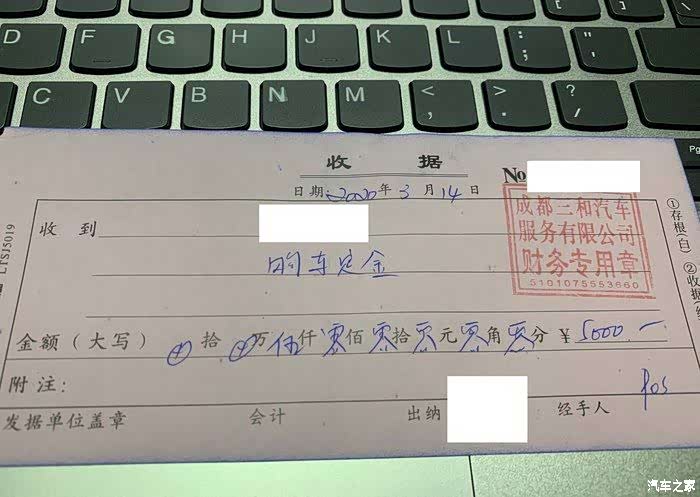 D F G H J K L : ;
C V B N M < , > . ? /
Pg
收 据
No
日期:2020年3月14日
成都三和汽车
服务有限公司
财务专用章
5101075553660
收 到
购车定金
LTSJ5019
①存根(白) ②收据
金额(大写) ⊕拾⊕万伍仟零佰零拾零元零角零分 ¥5000.—
附注:
Pos
发据单位盖章 会计 出纳 经手人
汽车之家